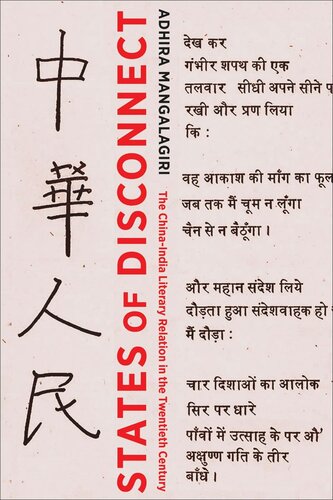 中
華
人
民
STATES OF DISCONNECT
The China-India Literary Relation in the Twentieth Century
ADHIRA MANGALAGIRI
देख कर
गंभीर शपथ की एक
तलवार सीधी अपने सीने
रखी और प्रण लिया
कि :
वह आकाश की माँग का फूल
जब तक मैं चूम न लूँगा
चैन से न बैठूँगा ।
और महान संदेश लिये
दौड़ता हुआ संदेशवाहक हो
मैं दौड़ा :
चार दिशाओं का आलोक
सिर पर धारे
पाँवों में उत्साह के पर औ'
अक्षुण्ण गति के तीर
बाँधे ।